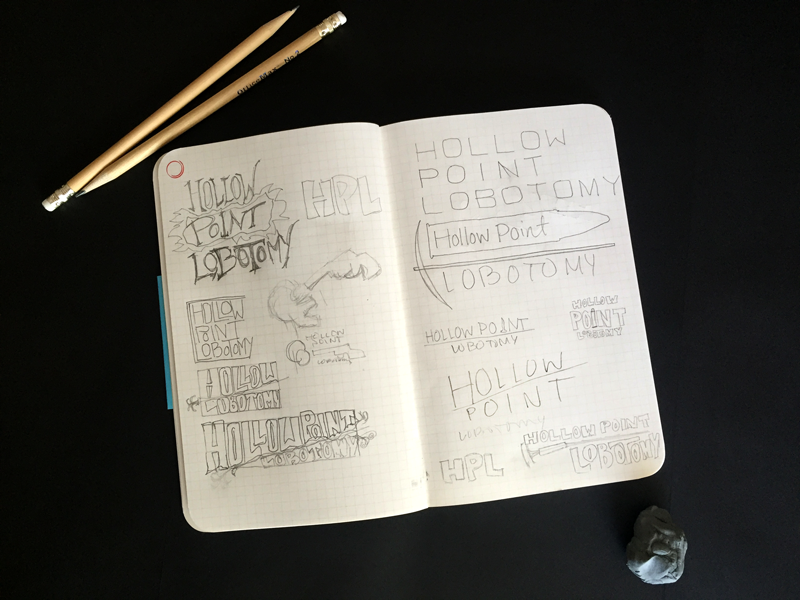 OfficeMax No.2
HOLLOW
POINT
LOBOTOMY
HPL
HOLLOW
POINT
LOBOTOMY
HOLLOW
POINT
HOLLOW
LOBOTOMY
HOLLOW POINT
LOBOTOMY
HOLLOW
POINT
LOBOTOMY
Hollow Point
LOBOTOMY
HOLLOW POINT
LOBOTOMY
HOLLOW
POINT
LOBOTOMY
HOLLOW
POINT
LOBOTOMY
HPL
HOLLOW POINT
LOBOTOMY